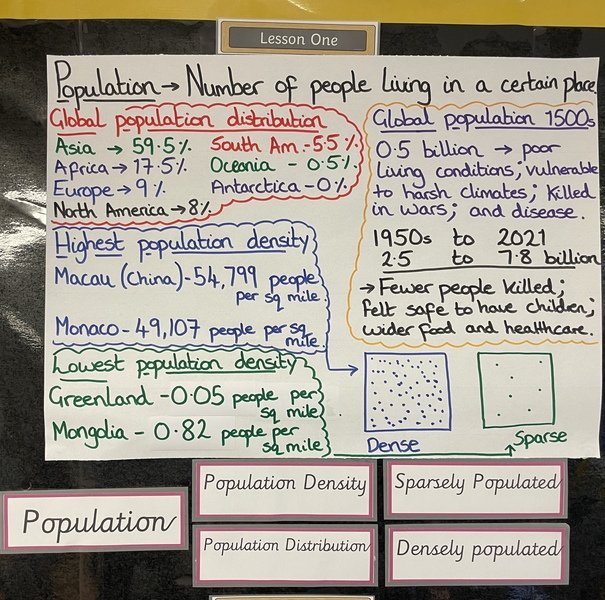 Lesson One
Population → Number of people living in a certain place.
Global population distribution
Asia → 59.5%
Africa → 17.5%
Europe → 9%
North America → 8%
South Am - 5.5%
Oceania - 0.5%
Antarctica - 0%
Global population 1500s
0.5 billion → poor
living conditions; vulnerable
to harsh climates; killed
in wars; and disease.
1950s to 2021
2.5 to 7.8 billion
→ Fewer people killed;
felt safe to have children;
wider food and healthcare.
Highest population density
Macau (China) - 54,799 people
per sq mile
Monaco - 49,107 people per sq
mile
Lowest population density
Greenland - 0.05 people per
sq mile
Mongolia - 0.82 people per
sq mile
Dense
Sparse
Population
Population Density
Sparsely Populated
Population Distribution
Densely populated